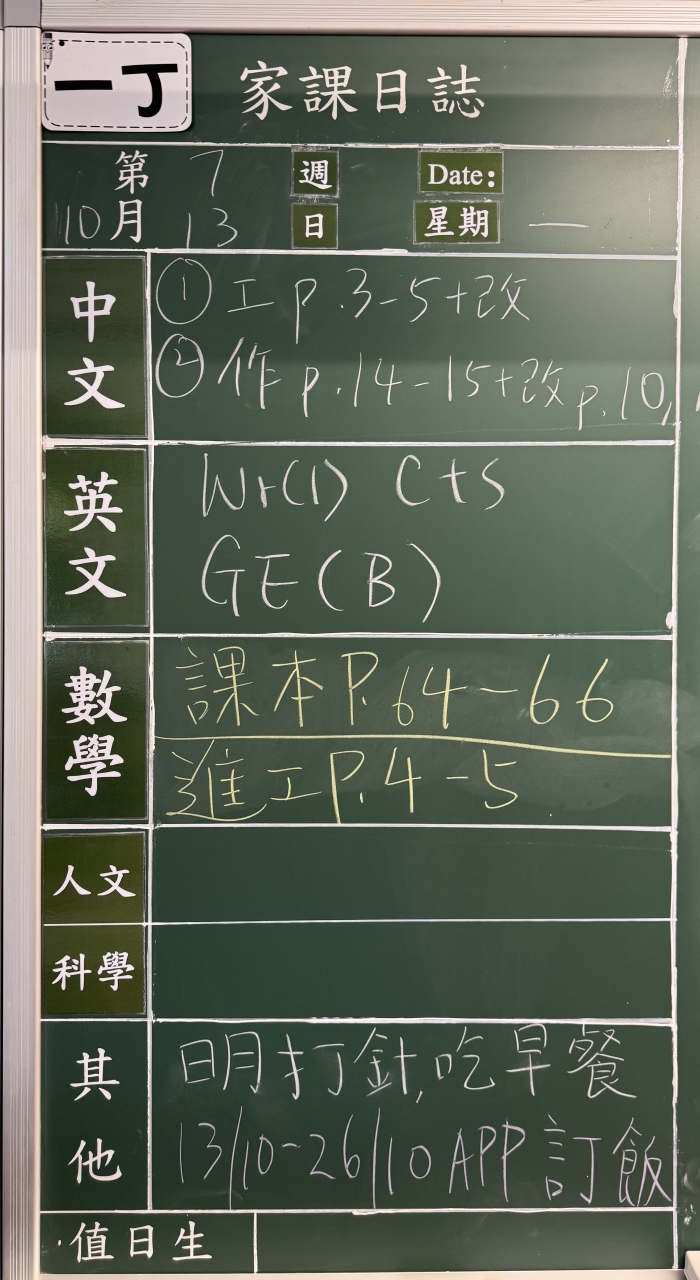 一丁
家課日誌
第 7 週 Date:
10月 13 日 星期 一
中文
① 工 p.3-5+改
② 作 p.14-15+改 p.10,
英文
Wr(1) C+S
GE(B)
數學
課本P.64-66
進工P.4-5
人文
科學
其他
明打針,吃早餐
13/10-26/10 APP 訂飯
值日生